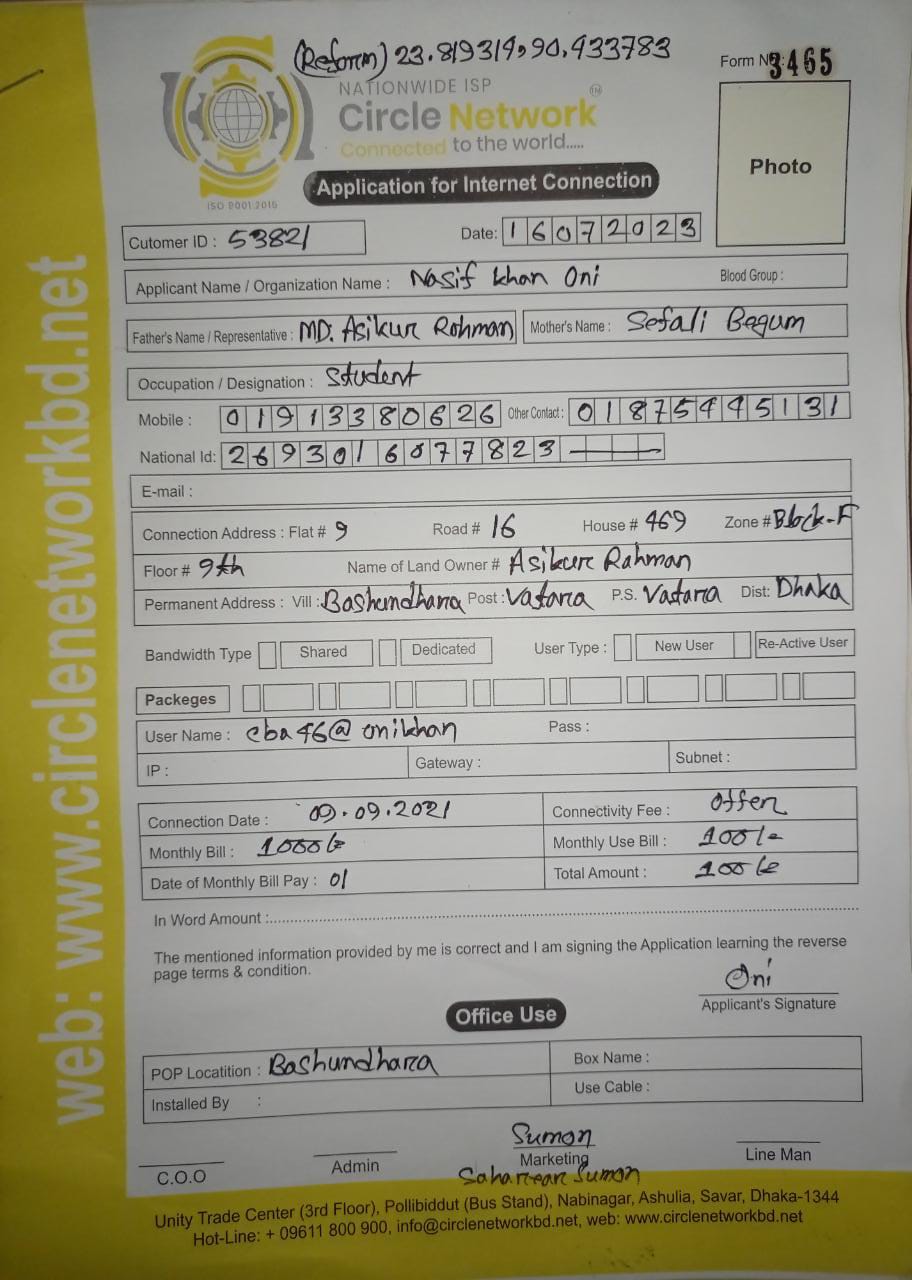 (Reform) 23.819319,90.433783
Form No: 3465
NATIONWIDE ISP
Circle Network TM
Connected to the world.....
ISO 9001:2015
Photo
Application for Internet Connection
Cutomer ID : 53821 Date: 16072023
Applicant Name / Organization Name : Nasif Khan Oni Blood Group :
Father's Name / Representative : MD. Asikur Rohman Mother's Name : Sefali Begum
Occupation / Designation : Student
Mobile : 01913380626 Other Contact : 01875445131
National Id: 2693016077823
E-mail :
Connection Address : Flat # 9 Road # 16 House # 469 Zone # Block-F
Floor # 9th Name of Land Owner # Asikur Rahman
Permanent Address : Vill : Bashundhara Post : Vatara P.S. Vatara Dist: Dhaka
Bandwidth Type Shared Dedicated User Type : New User Re-Active User
Packeges
User Name : cba46@onikhan Pass :
IP : Gateway : Subnet :
Connection Date : 09.09.2021 Connectivity Fee : Offer
Monthly Bill : 1000/= Monthly Use Bill : 100/=
Date of Monthly Bill Pay : 01 Total Amount : 100/=
In Word Amount :
The mentioned information provided by me is correct and I am signing the Application learning the reverse
page terms & condition.
Oni
Applicant's Signature
Office Use
POP Locatition : Bashundhara Box Name :
Installed By : Use Cable :
Sumon
C.O.O Admin Marketing Line Man
Saharear Sumon
Unity Trade Center (3rd Floor), Pollibiddut (Bus Stand), Nabinagar, Ashulia, Savar, Dhaka-1344
Hot-Line: + 09611 800 900, info@circlenetworkbd.net, web: www.circlenetworkbd.net
web: www.circlenetworkbd.net